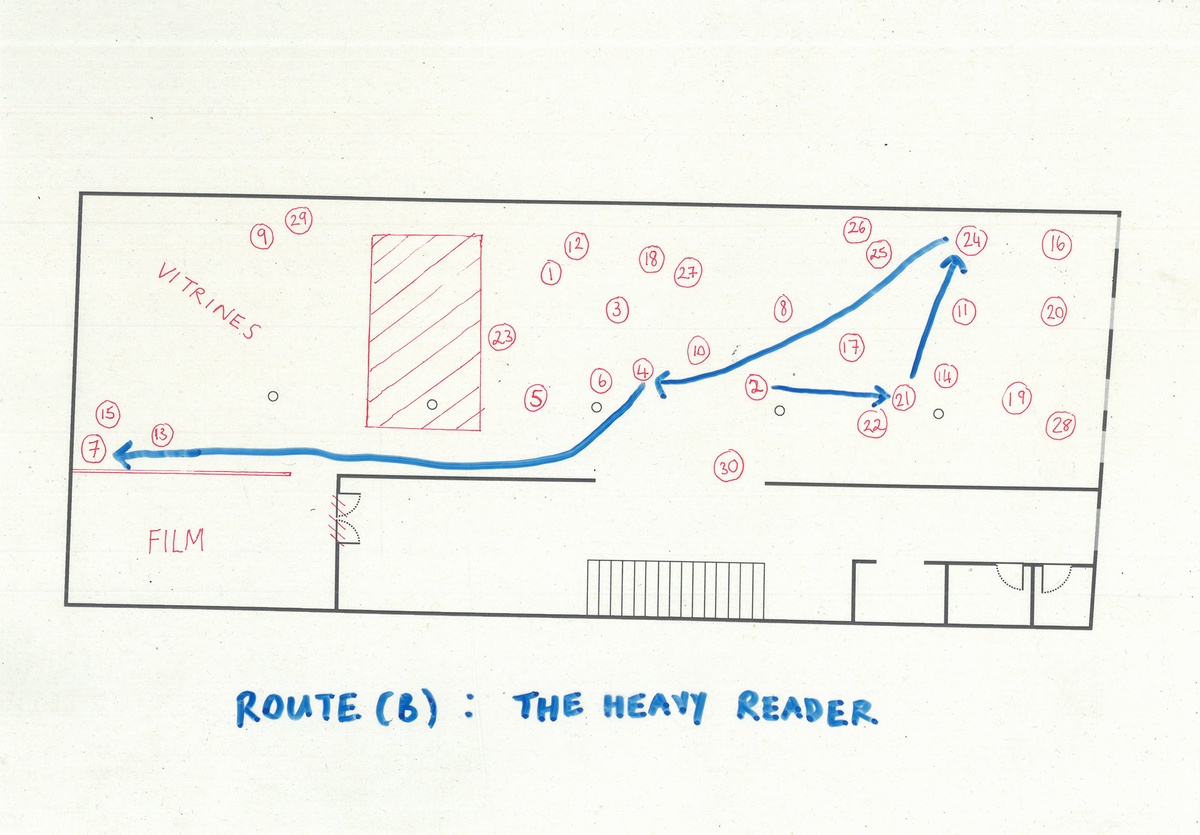 29
9
26
24
16
12
25
1
18
27
3
8
11
20
VITRINES
23
10
17
4
6
5
2
21
14
19
15
13
22
28
7
30
FILM
ROUTE (B) : THE HEAVY READER